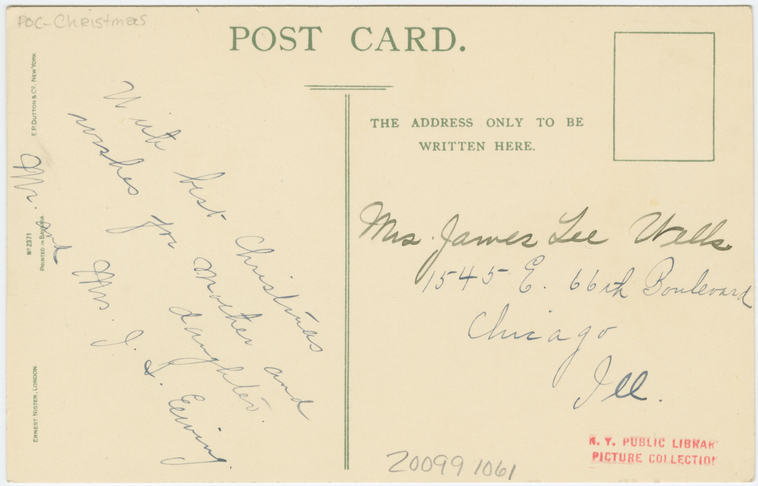 POC-Christmas
POST CARD.
THE ADDRESS ONLY TO BE
WRITTEN HERE.
E.P. DUTTON & CO. NEW YORK.
Nº 2371
PRINTED IN BAVARIA
ERNEST NISTER, LONDON.
With best Christmas
wishes for Mother and
daughter.
Mr. and Mrs. J. L. Ewing.
Mrs. James Lee Wells
1545 E. 66th Boulevard
Chicago
Ill.
N. Y. PUBLIC LIBRAR
PICTURE COLLECTION
200991061